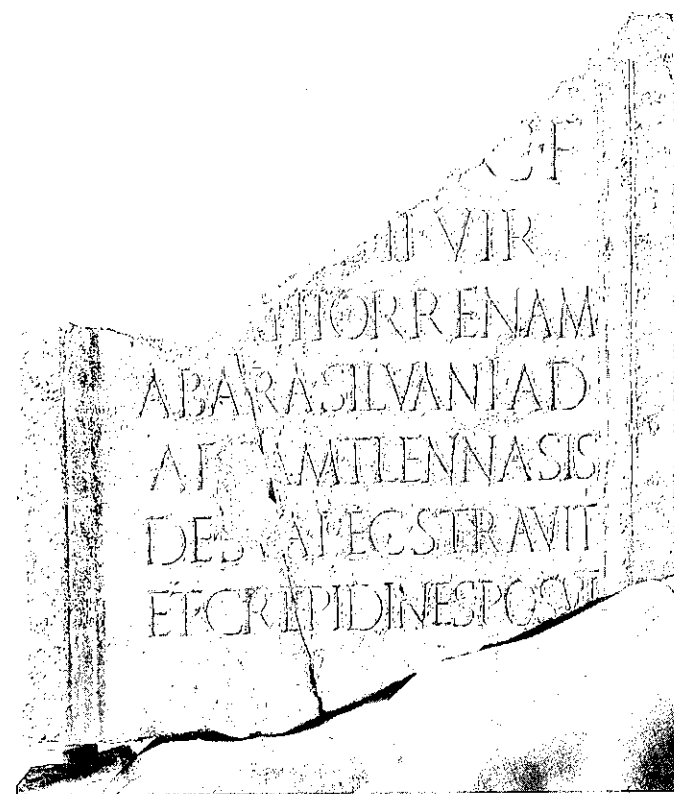 C F
II VIR
HORRENAM
AB ARA SILVANI AD
TLENNASIS
DE SVA PEC STRAVIT
ET CREPIDINES POSVIT